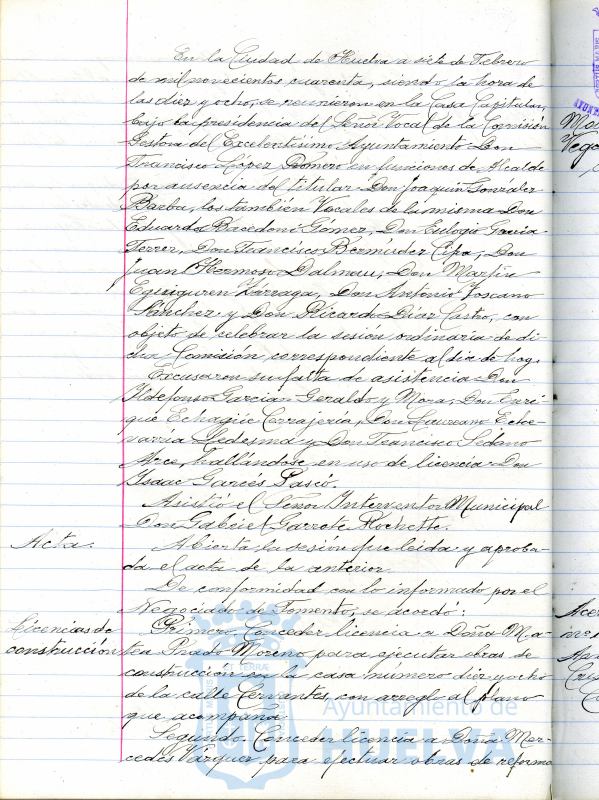 En la Ciudad de Huelva a siete de Febrero
de mil novecientos cuarenta, siendo la hora de
las diez y ocho, se reunieron en la Casa Capitular,
bajo la presidencia del Señor Vocal de la Comisión
Gestora del Excelentísimo Ayuntamiento Don
Francisco López Romero en funciones de Alcalde
por ausencia del titular Don Joaquín González
Barba, los también Vocales de la misma Don
Eduardo Bacedoni Gómez, Don Eulogio García
Ferrer, Don Francisco Bermúdez Cipa, Don
Juan Hermoso Dalmau, Don Martín
Eguiguren Azárraga, Don Antonio Toscano
Sánchez y Don Ricardo Díaz Castro, con
objeto de celebrar la sesión ordinaria de di-
cha Comisión, correspondiente al día de hoy.
Excusaron su falta de asistencia Don
Ildefonso Garcian Geraldo y Mora, Don Enri-
que Echagüe Cerrajería, Don Laureano Eche-
varría Ledesma y Don Francisco Sedano
Arce, hallándose en uso de licencia Don
Isaac Garcés Pascó.
Asistió el Señor Interventor Municipal
Don Gabriel Garrote Rochette.
Acta. Abierta la sesión fue leida y aproba-
da el acta de la anterior.
De conformidad con lo informado por el
Negociado de Fomento, se acordó:
Licencias de Primero. Conceder licencia a Doña Ma-
construcción tea Prado Moreno para ejecutar obras de
construcción en la casa número diez y ocho
de la calle Cervantes, con arreglo al plano
que acompaña.
Segundo. Conceder licencia a Doña Mer-
cedes Vázquez para efectuar obras de reforma
Ayuntamiento de
HUELVA